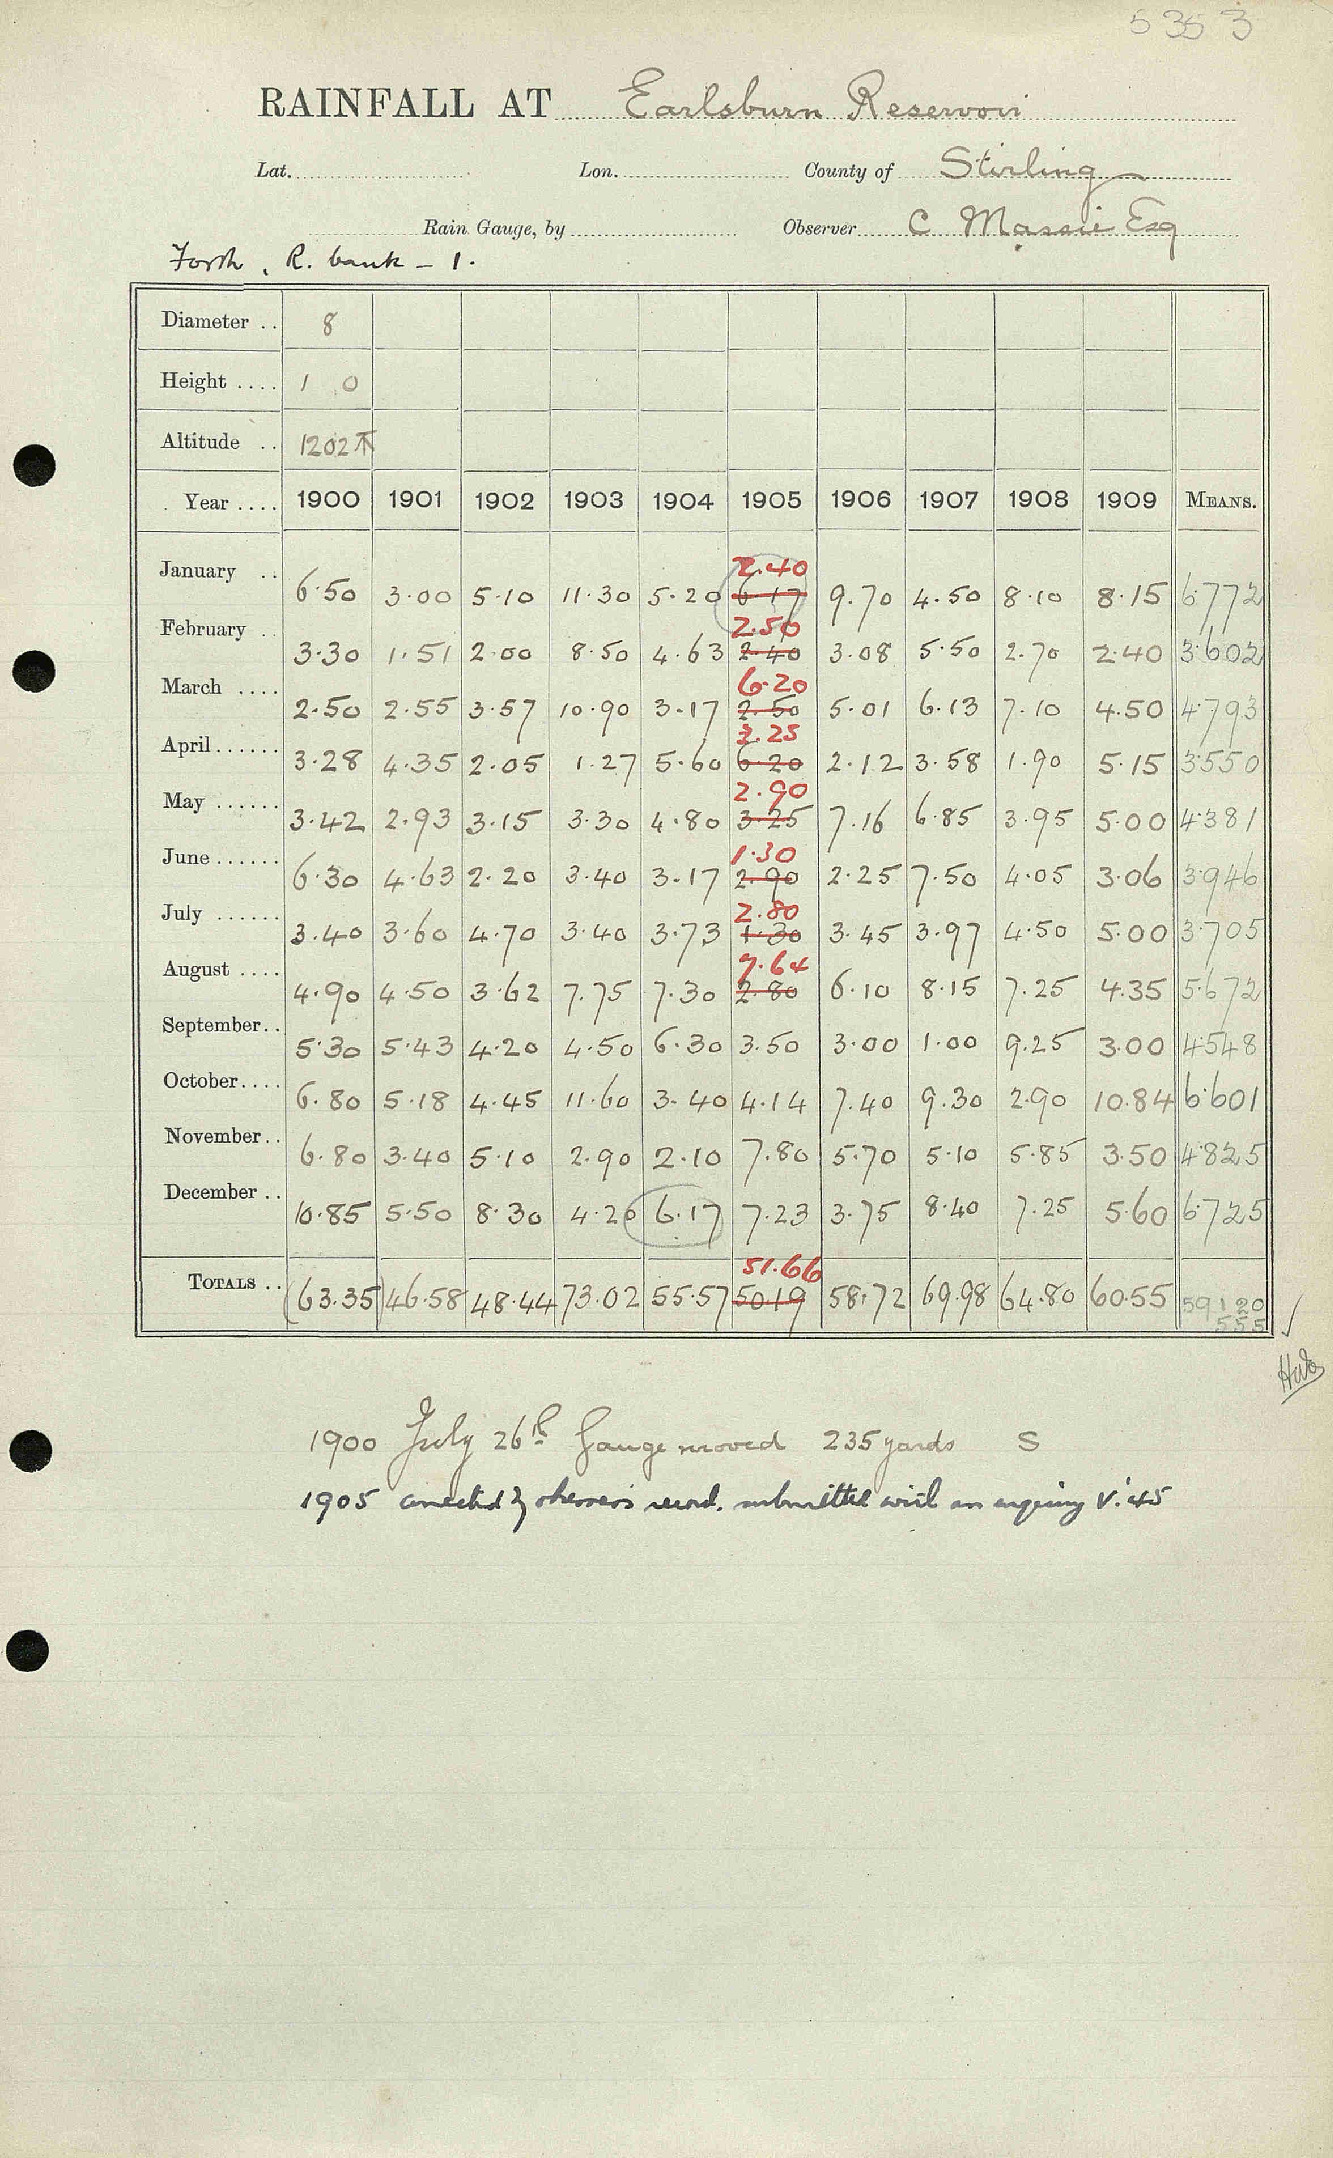 5353
RAINFALL AT Earlsburn Reservoir
Lat. Lon. County of Stirling
Rain Gauge, by Observer C Massie Esq
Forth, R. bank - 1.
Diameter .. 8
Height .... 1 0
Altitude .. 1202
Year .... 1900 1901 1902 1903 1904 1905 1906 1907 1908 1909 MEANS.
2.40
January .. 6.50 3.00 5.10 11.30 5.20 6.17 9.70 4.50 8.10 8.15 6.772
2.50
February .. 3.30 1.51 2.00 8.50 4.63 2.40 3.08 5.50 2.70 2.40 3.602
6.20
March .... 2.50 2.55 3.57 10.90 3.17 2.50 5.01 6.13 7.10 4.50 4.793
3.25
April ...... 3.28 4.35 2.05 1.27 5.60 6.20 2.12 3.58 1.90 5.15 3.550
2.90
May ...... 3.42 2.93 3.15 3.30 4.80 3.25 7.16 6.85 3.95 5.00 4.381
1.30
June ...... 6.30 4.63 2.20 3.40 3.17 2.90 2.25 7.50 4.05 3.06 3.946
2.80
July ...... 3.40 3.60 4.70 3.40 3.73 1.30 3.45 3.97 4.50 5.00 3.705
7.64
August .... 4.90 4.50 3.62 7.75 7.30 2.80 6.10 8.15 7.25 4.35 5.672
September .. 5.30 5.43 4.20 4.50 6.30 3.50 3.00 1.00 9.25 3.00 4.548
October .... 6.80 5.18 4.45 11.60 3.40 4.14 7.40 9.30 2.90 10.84 6.601
November .. 6.80 3.40 5.10 2.90 2.10 7.80 5.70 5.10 5.85 3.50 4.825
December .. 10.85 5.50 8.30 4.20 6.17 7.23 3.75 8.40 7.25 5.60 6.725
51.66
TOTALS .. (63.35) 46.58 48.44 73.02 55.57 50.19 58.72 69.98 64.80 60.55 59.120
555
1900 July 26th Gauge moved 235 yards S
1905 corrected by observer's record, submitted with an enquiry V.'45